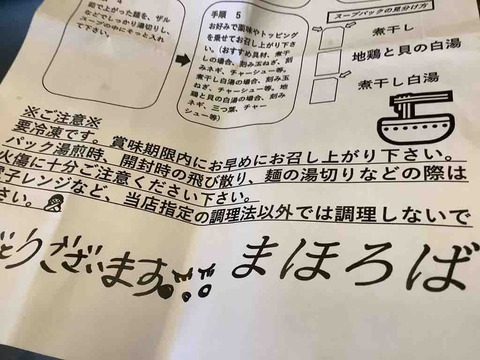 茹で上がった麺を、ザル
などでしっかり湯切りし、
スープの中にそっと入れ
て下さい。
手順 5
お好みで薬味やトッピング
を乗せてお召し上がり下さ
い。(おすすめ具材、煮干
しの場合、刻み玉ねぎ、刻
みネギ、チャーシュー等。
煮干し白湯の場合、刻み玉
ねぎ、チャーシュー等。地
鶏と貝の白湯の場合、刻み
ネギ、三つ葉、チャー
シュー等)
スープパックの見分け方
煮干し
地鶏と貝の白湯
煮干し白湯
※ご注意※
要冷凍です。賞味期限内にお早めにお召し上がり下さい。
パック湯煎時、開封時の飛び散り、麺の湯切りなどの際は
火傷に十分ご注意ください下さい。
電子レンジなど、当店指定の調理法以外では調理しないで
さい。
とうございます。
まほろば